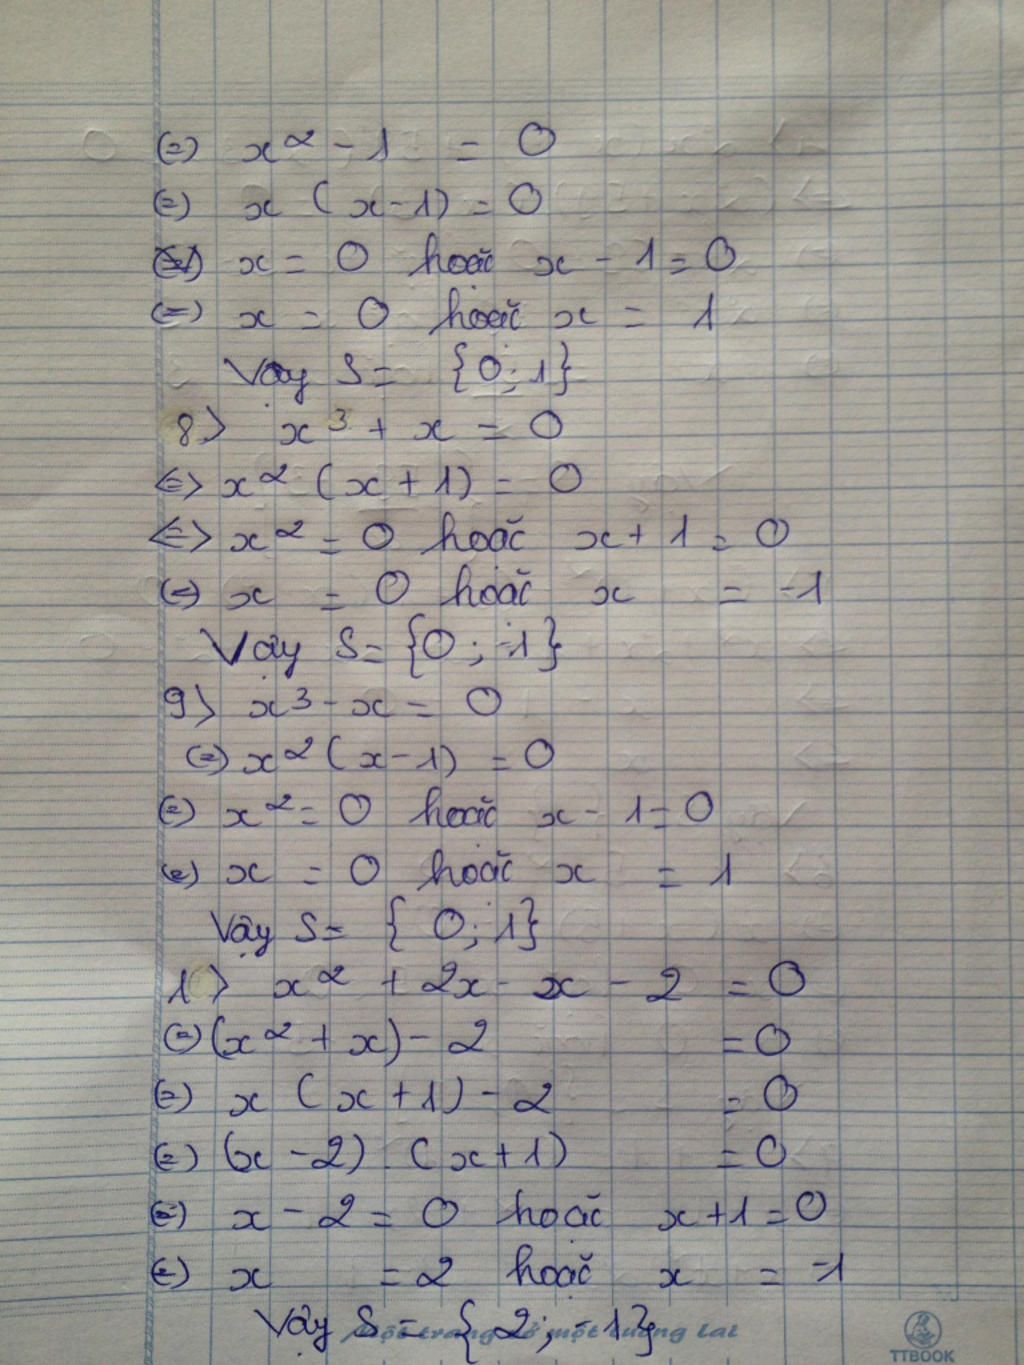 (=) x² - 1 = 0
(=) x (x-1) = 0
x = 0 hoặc x - 1 = 0
(=) x = 0 hoặc x = 1
Vậy S = {0; 1}
8> x³ + x = 0
<=> x² (x + 1) = 0
<=> x² = 0 hoặc x + 1 = 0
(=) x = 0 hoặc x = -1
Vậy S = {0; -1}
9> x³ - x = 0
(=) x² (x - 1) = 0
(=) x² = 0 hoặc x - 1 = 0
(=) x = 0 hoặc x = 1
Vậy S = {0; 1}
1> x² + 2x - x - 2 = 0
(=) (x² + x) - 2 = 0
(=) x (x + 1) - 2 = 0
(=) (x - 2) . (x + 1) = 0
(=) x - 2 = 0 hoặc x + 1 = 0
(=) x = 2 hoặc x = -1
Vậy S = {2; -1}
Một trang vở một tương lai
TTBOOK